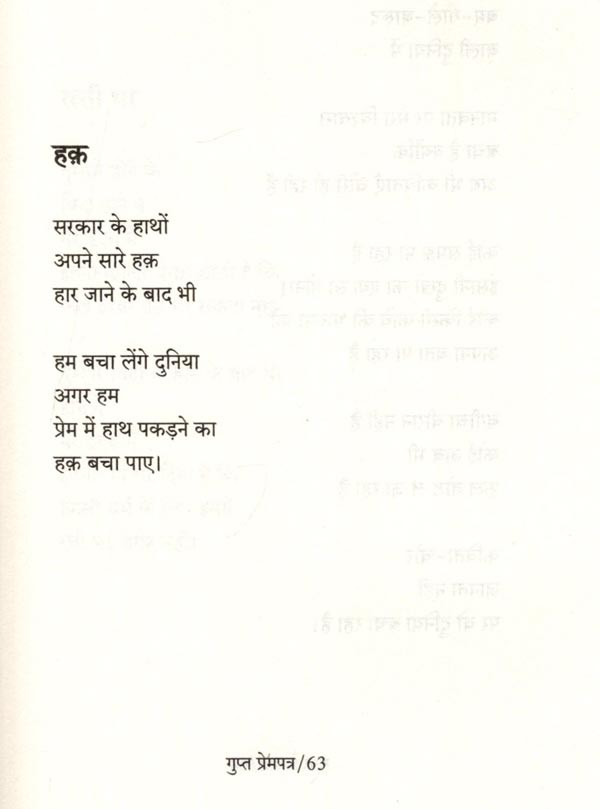 हक़
सरकार के हाथों
अपने सारे हक़
हार जाने के बाद भी
हम बचा लेंगे दुनिया
अगर हम
प्रेम में हाथ पकड़ने का
हक़ बचा पाए।
गुप्त प्रेमपत्र/63